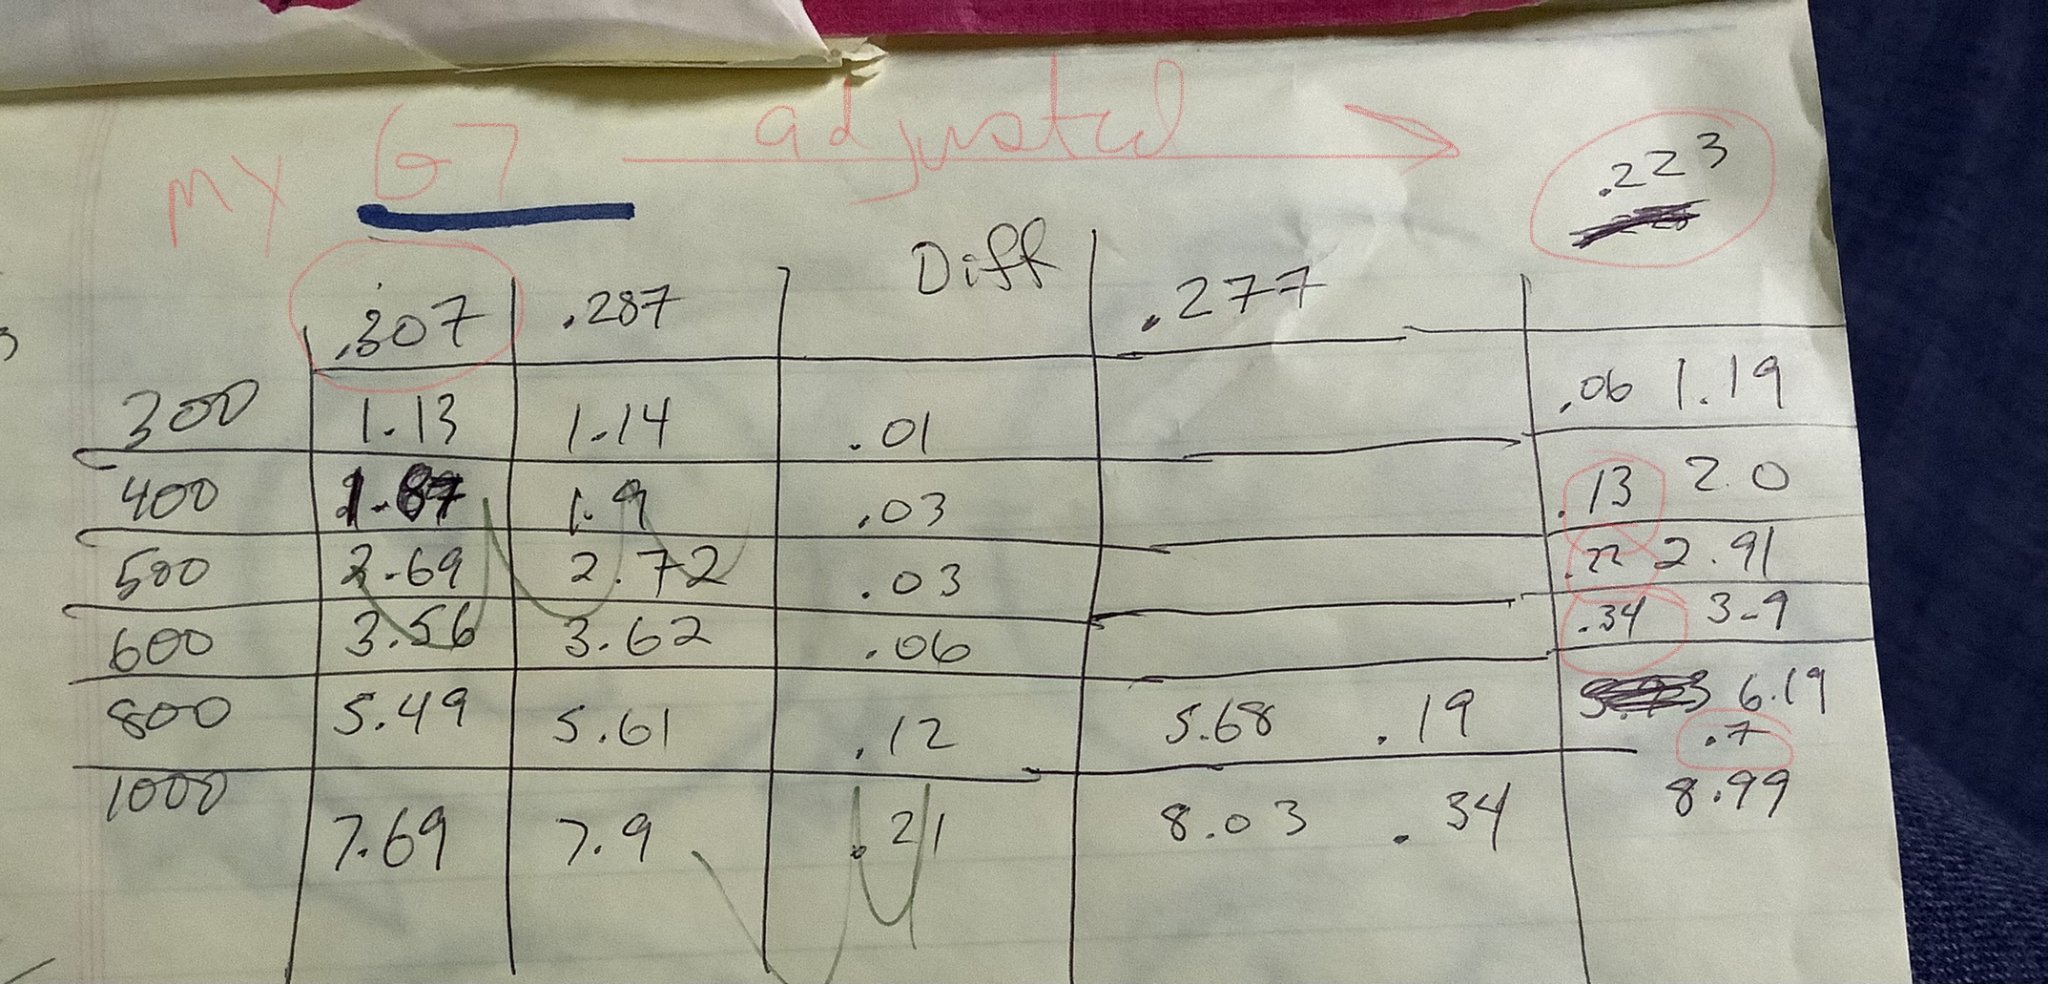 MY G7 adjusted
.223
Diff
.307 .287 .277
300 1.13 1.14 .01 .06 1.19
400 1.87 1.9 .03 .13 2.0
500 2.69 2.72 .03 .22 2.91
600 3.56 3.62 .06 .34 3.9
800 5.49 5.61 .12 5.68 .19 6.19
.7
1000 7.69 7.9 .21 8.03 .34 8.99